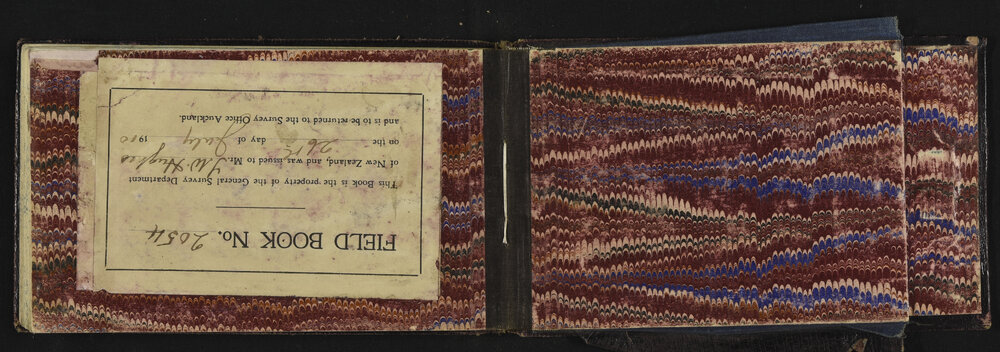 FIELD BOOK No. 2054
This Book is the property of the General Survey Department
of New Zealand, and was issued to Mr. T W Hughes
on the 26th day of July 1910
and is to be returned to the Survey Office Auckland.